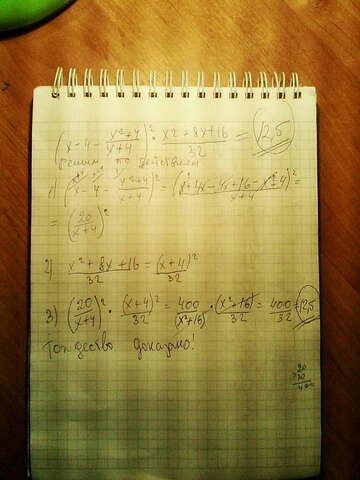 (x-4-\frac{x²+4}{x+4})² · \frac{x²+8x+16}{32} = 12,5
решим по действиям
1) (x-4-\frac{x²+4}{x+4})² = (\frac{x²+4x-4x+16-x²+4}{x+4})² =
= (\frac{20}{x+4})²
2) \frac{x²+8x+16}{32} = \frac{(x+4)²}{32}
3) (\frac{20}{x+4})² · \frac{(x+4)²}{32} = \frac{400}{(x²+16)} · \frac{(x²+16)}{32} = \frac{400}{32} = 12,5
Тождество доказано!
20
20
400